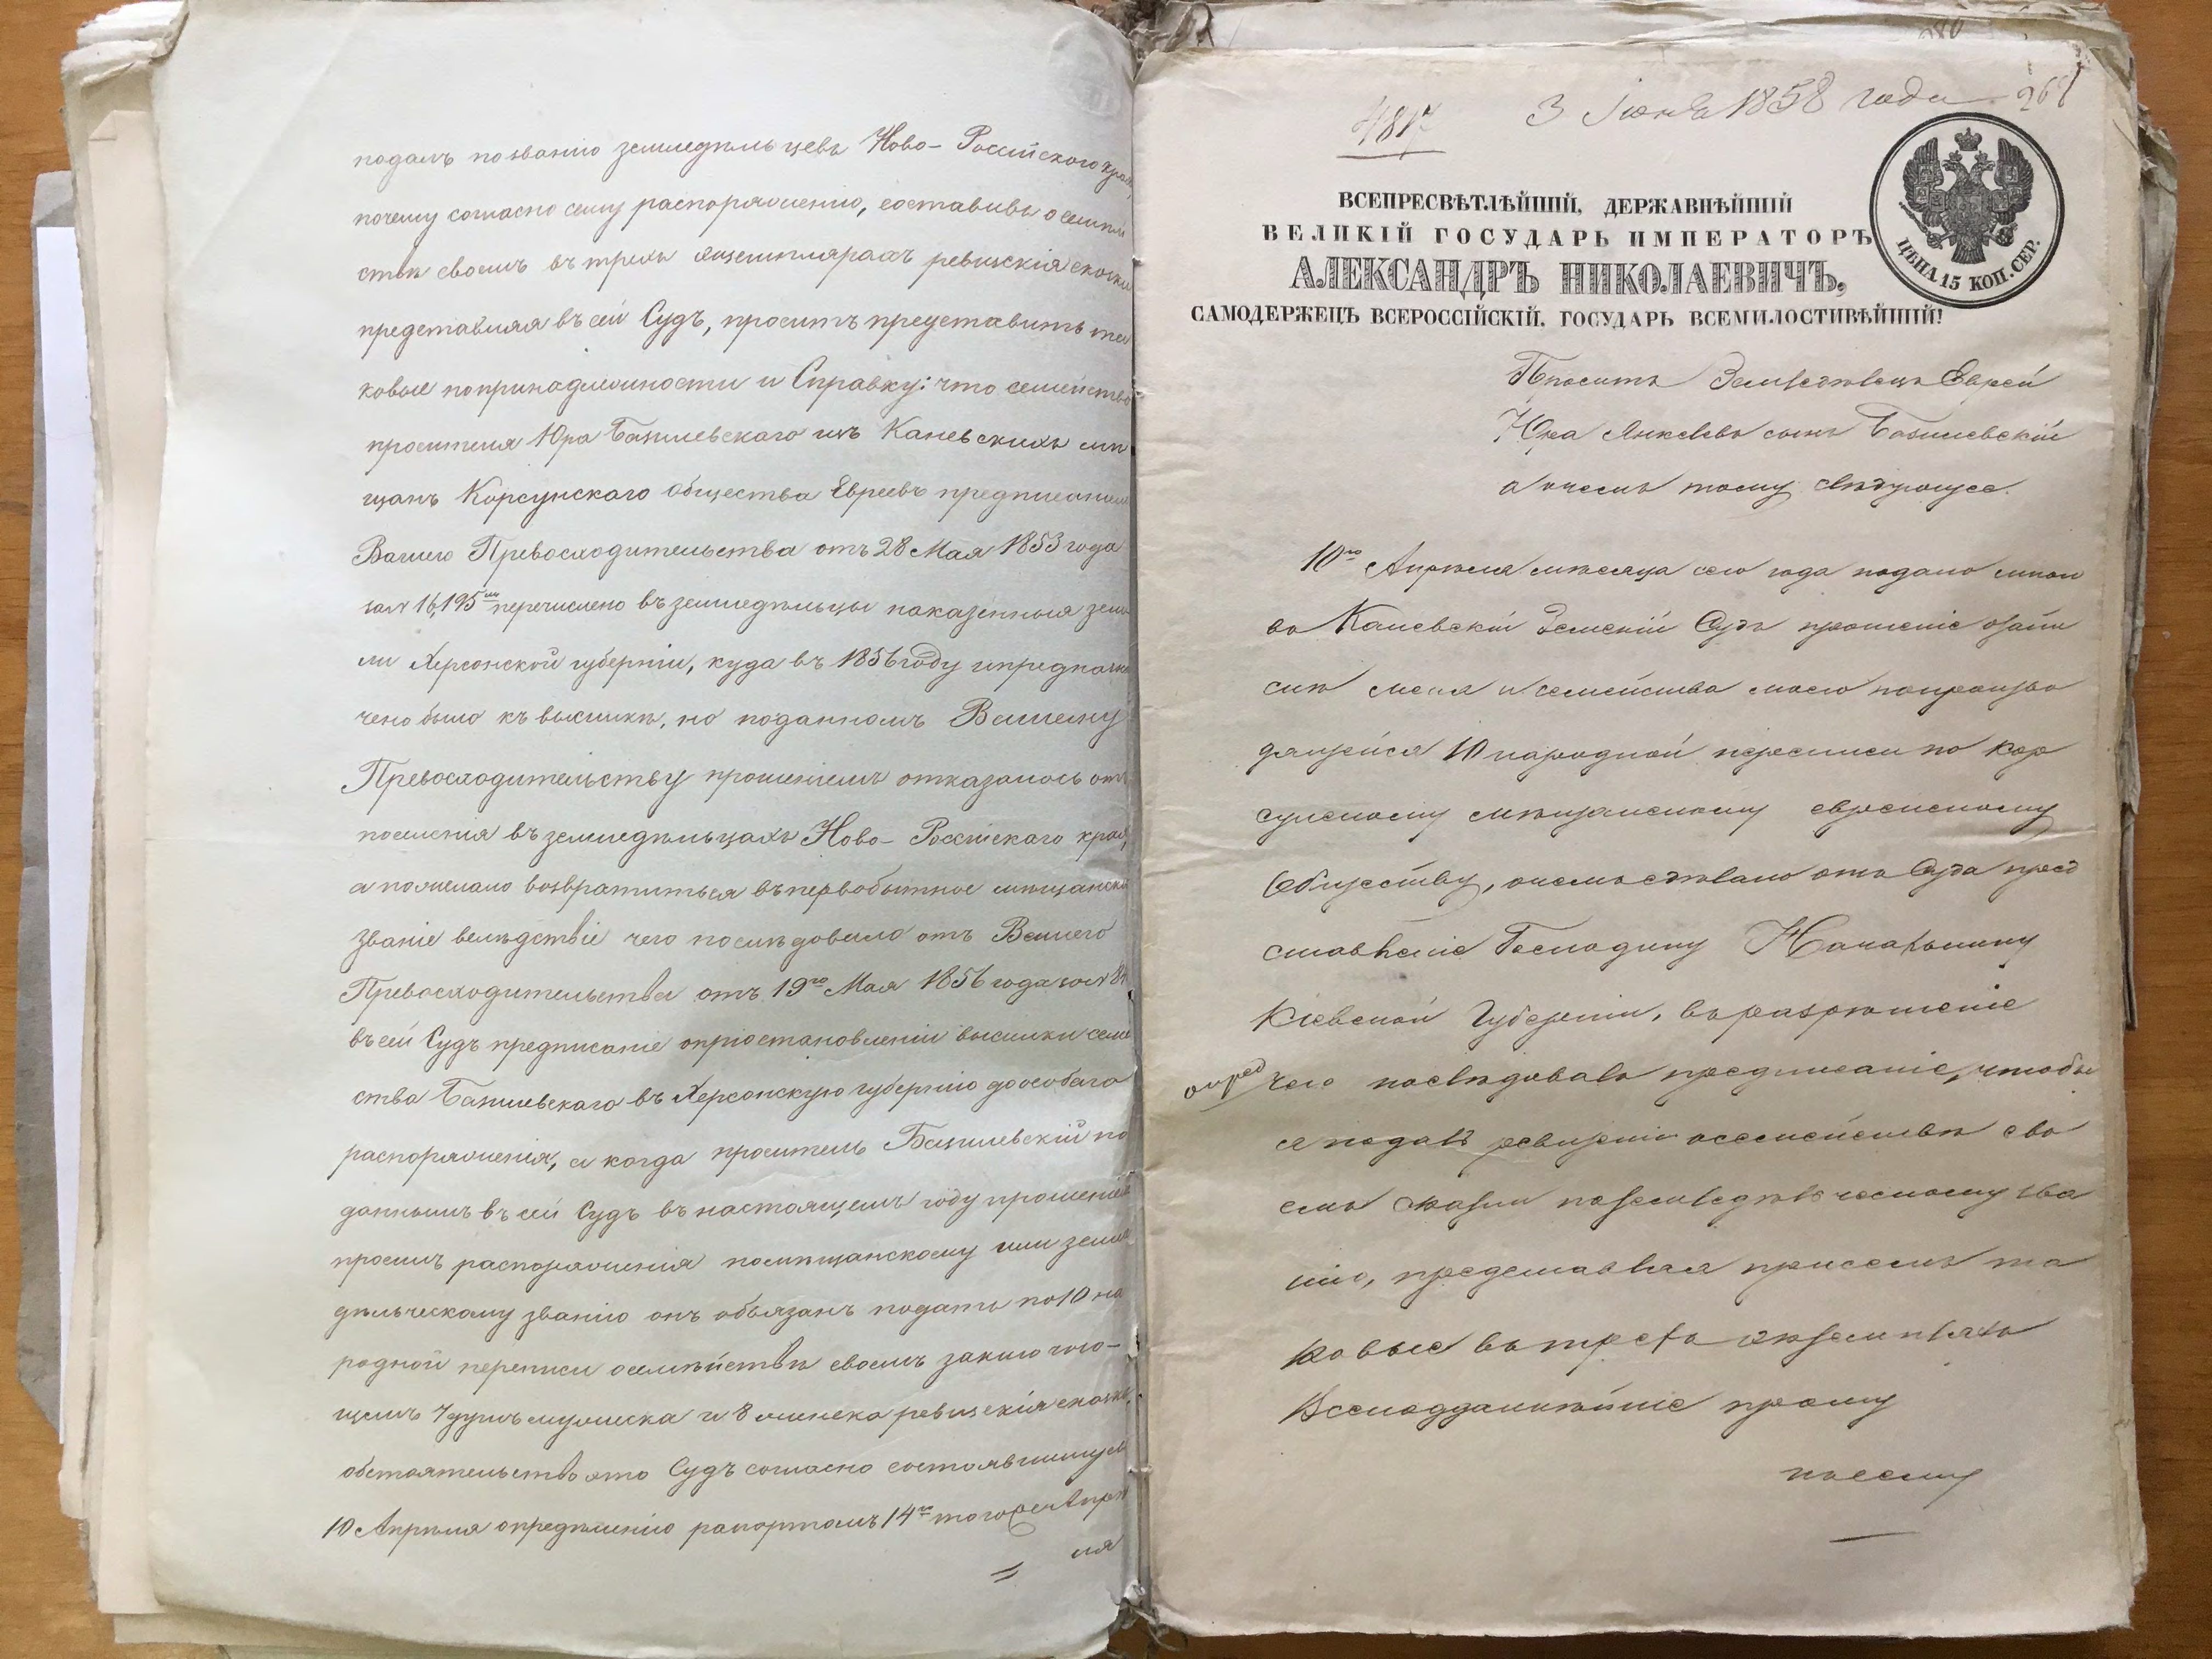 подалъ по званію земледѣльцевъ Ново-Россійского края,
почему согласно сему распоряженію, составивъ о семей
ствѣ своемъ въ трехъ экземплярахъ ревизскія сказки
представляя въ сей Судъ, проситъ представить та
ковые по принадлежности и Справку: что семейство
просителя Юра Базилевскаго изъ Каневскихъ мѣ
щанъ Корсунскаго общества Евреевъ предписаніемъ
Вашего Превосходительства отъ 28 Мая 1853 года
за № 16,195 перечислено въ земледѣльцы на казенныя зем
ли Херсонской губерніи, куда въ 1856 году и предназна
чено было къ высылкѣ, но поданномъ Вашему
Превосходительству прошеніемъ отказалось отъ
поселенія въ земледѣльцахъ Ново-Россійскаго края,
а пожелало возвратиться въ первобытное мѣщанское
званіе вслѣдствіе чего послѣдовало отъ Вашего
Превосходительства отъ 19го Мая 1856 года за №
въ сей Судъ предписаніе о пріостановленіи высылки семей
ства Базилевскаго въ Херсонскую губернію до особаго
распоряженія, а когда проситель Базилевскій по
даннымъ въ сей Судъ въ настоящемъ году прошеніемъ
просилъ распоряженія по мѣщанскому или земле
дѣльческому званію онъ обязанъ подать по 10 на
родной переписи о семѣйствѣ своемъ заключаю-
щемъ 7 душъ мужеска и 8 женска ревизскія сказки,
обстоятельство это Судъ согласно состоявшемуся
10 Апрѣля опредѣленію рапортомъ 14го того же Апрѣ
ля
3 Іюня 1858 года
4817
ВСЕПРЕСВѢТЛѢЙШІЙ, ДЕРЖАВНѢЙШІЙ
ВЕЛИКІЙ ГОСУДАРЬ ИМПЕРАТОРЪ
АЛЕКСАНДРЪ НИКОЛАЕВИЧЪ,
САМОДЕРЖЕЦЪ ВСЕРОССІЙСКІЙ, ГОСУДАРЬ ВСЕМИЛОСТИВѢЙШІЙ!
ЦѢНА 15 КОП. СЕР.
Проситъ Земледѣлецъ Еврей
Юра Янкелевъ сынъ Базилевскій
а о чемъ тому слѣдующее.
10го Апрѣля мѣсяца сего года подано мною
въ Каневскій Земскій Судъ прошеніе о запи
скѣ меня и семейства моего по произво
дящейся 10 народной переписи по Кор
сунскому мѣщанскому еврейскому
Обществу, о чемъ сдѣлано отъ Суда пред
ставленіе Господину Начальнику
Кіевской Губерніи, въ разрѣшеніе
чего послѣдовало предписаніе, чтобы
я подалъ ревизскіе о семействѣ сво
емъ сказки по земледѣльческому зва
нію, представляя при семъ та
ковые въ трехъ экземплярахъ
Всеподданнѣйше прошу
къ сему